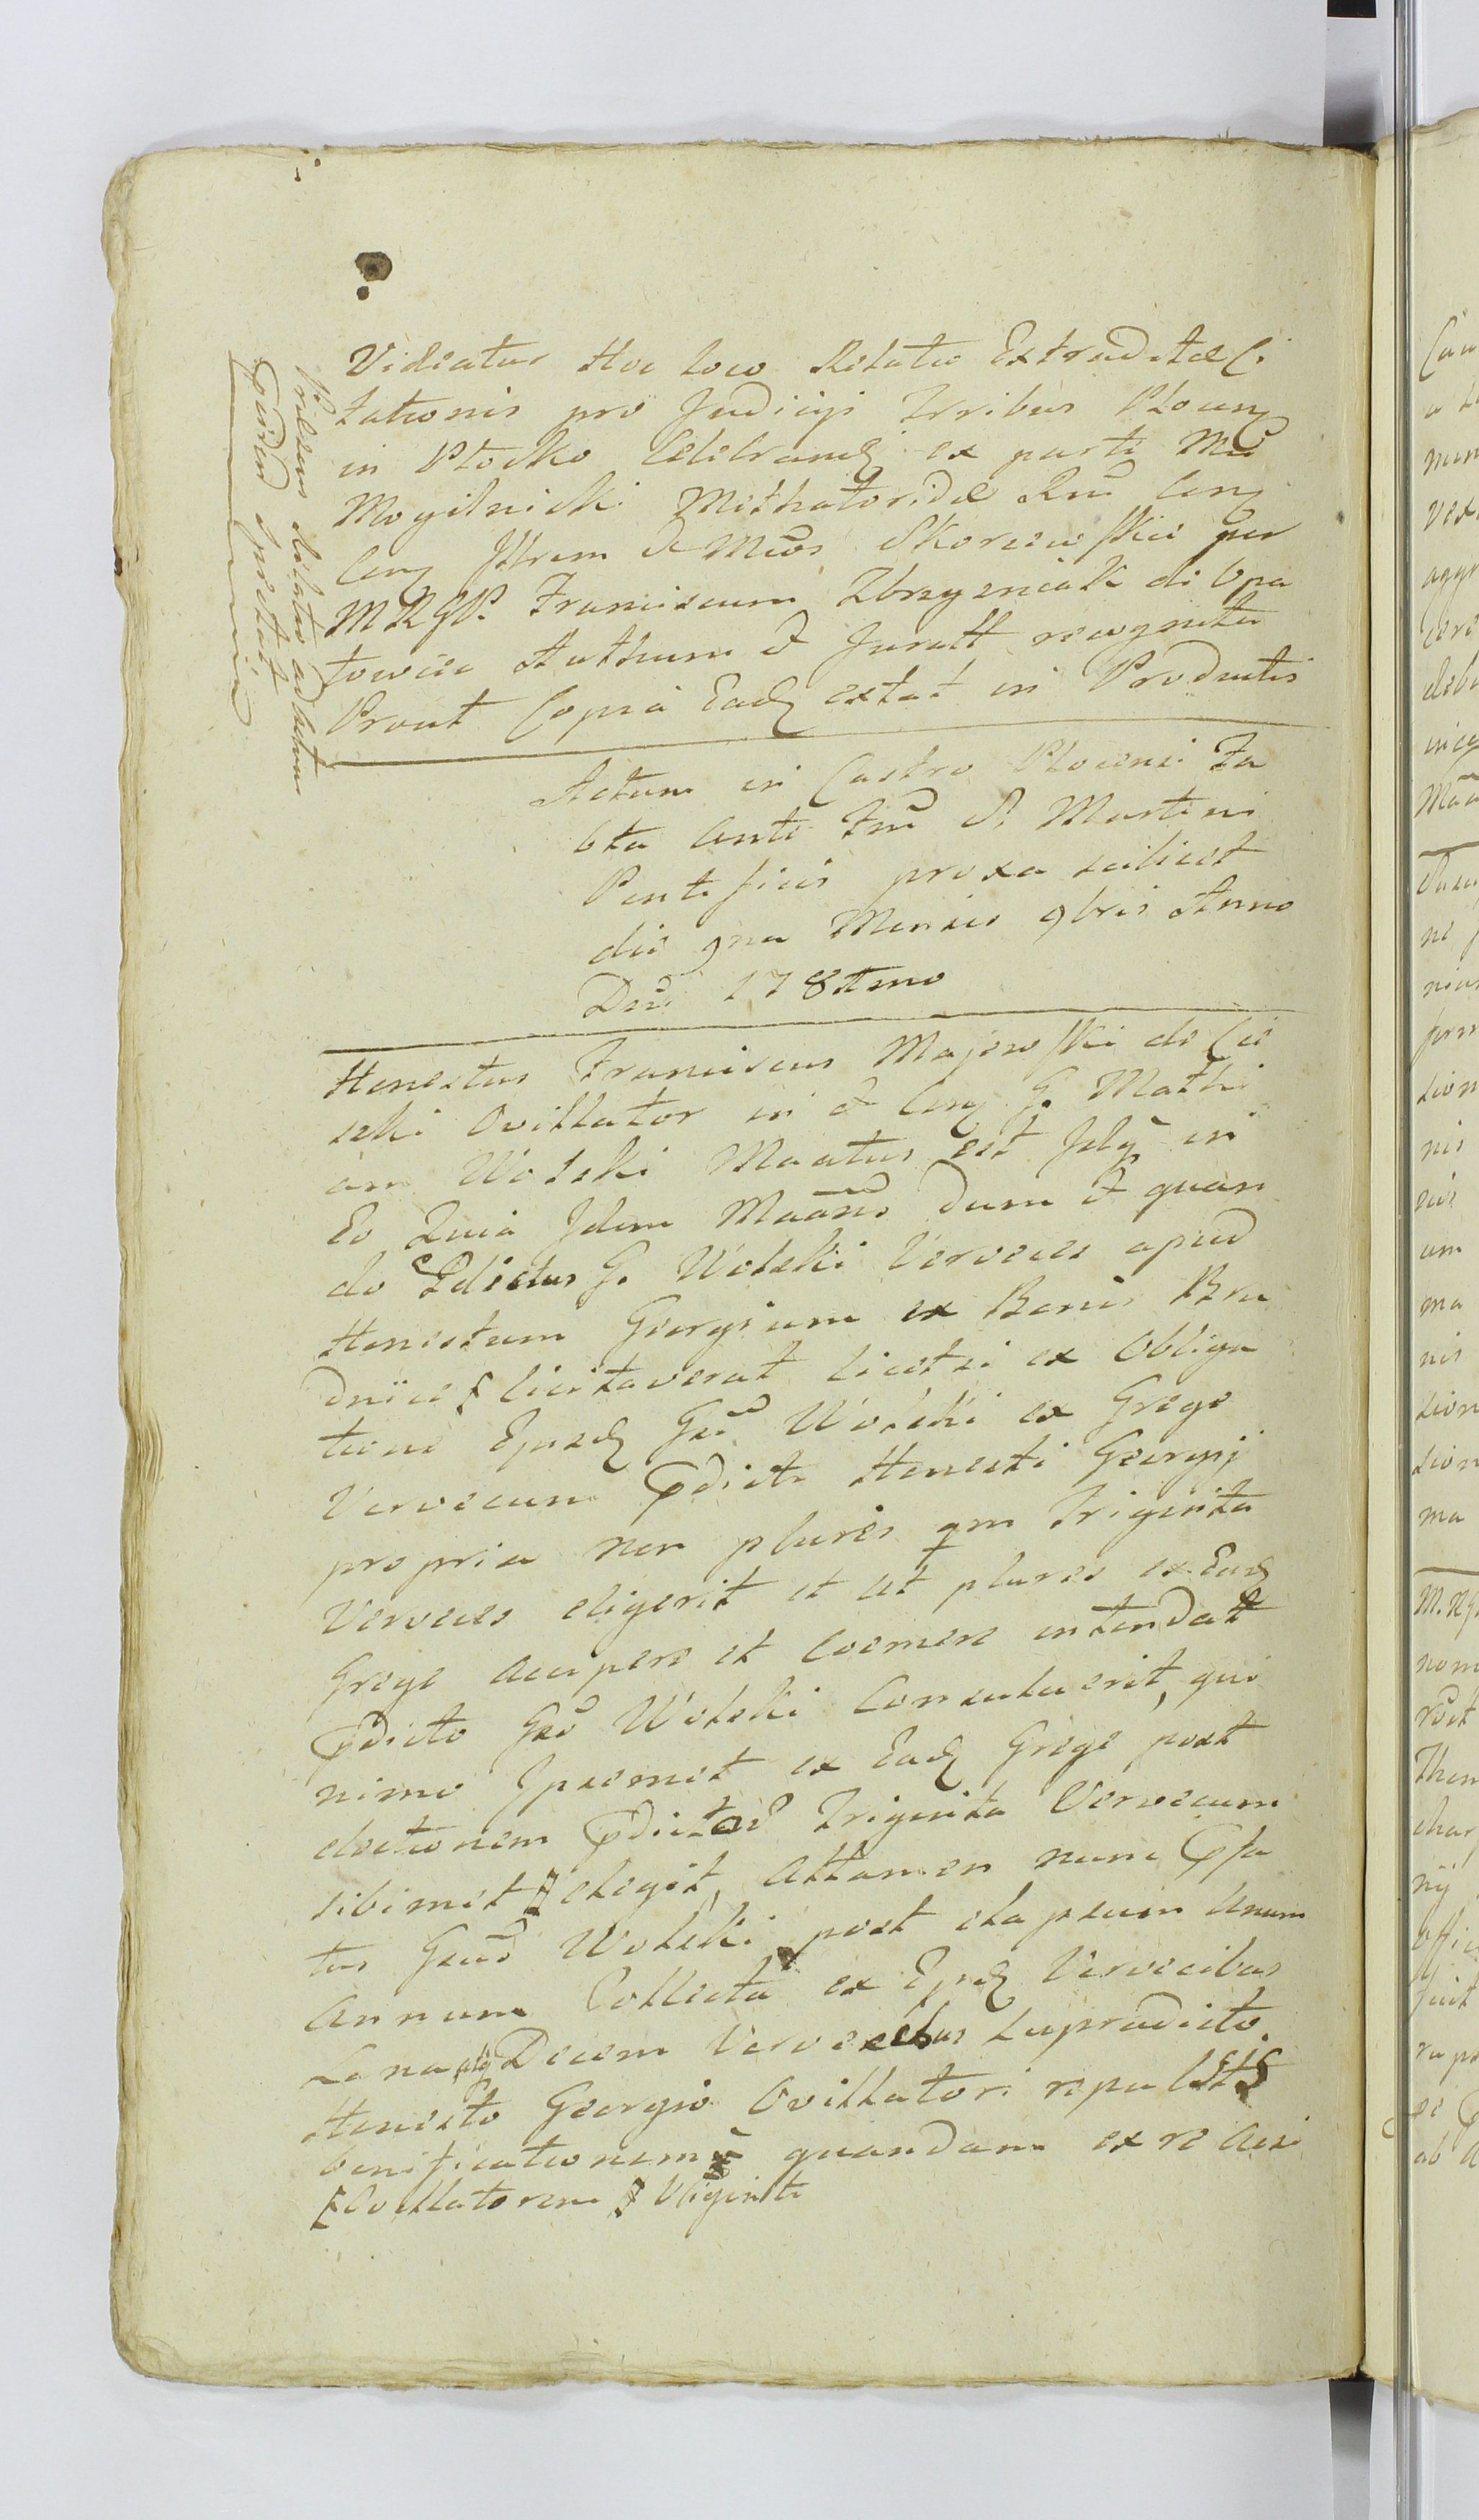 Videatur Hoc loco Relatio Extraditae Ci
tationis pro Judicijs Trribus Plocen
in Płocko Celebrand ex parte Mci
Mogilnicki Methatoridae Rni Con
Con Jllrem & Mcos Skorzewskie per
MRGP. Franciscum Zbrzyzniak de Opa
towiec Authum & Juratt recognita
Prout Copia Ead extat in Productis
Prilsus delator ad actum
quidem spectat
Actum in Castro Plocensi Fa
bta ante Fm S. Martini
Pontificis proxa scilicet
die 9na Mensis 9bris Anno
Dni 178Amo
Honestus Franciscus Majewski de Cie
seki Ovillator in & Con G. Mathi
am Wolski Maatus est Jdq in
Eo Quia Jdem Maans dum & quan
do Pdictus G. Wolski Verveces apud
Honestum Georgium ex Bonis Bru
dnice licitaverat licet si ex Obliga
tione Ejusd Gsi Wolski ex Grege
Vervecum Pdicti Honesti Georgij
propria non plures qm Triginta
Verveces eligerit et ut plures ex Ead
Grege accipere et coemere intendat
Pdicto Gso Wolski Consuluerit, qui
nimo Jpsemet ex Ead Grege post
electionem Pdictor Triginta Vervecum
sibimet elegit, attamen nunc Pfa
tus Gsus Wolski post elapsum Unum
Annum Collecta ex Ejusd Vervecibus
Lana alij Decem Vervecibus supradicto
Honesto Georgio Ovillatori repulsis
bonificationem quandam ex re acti
Ovillatorem Viginti